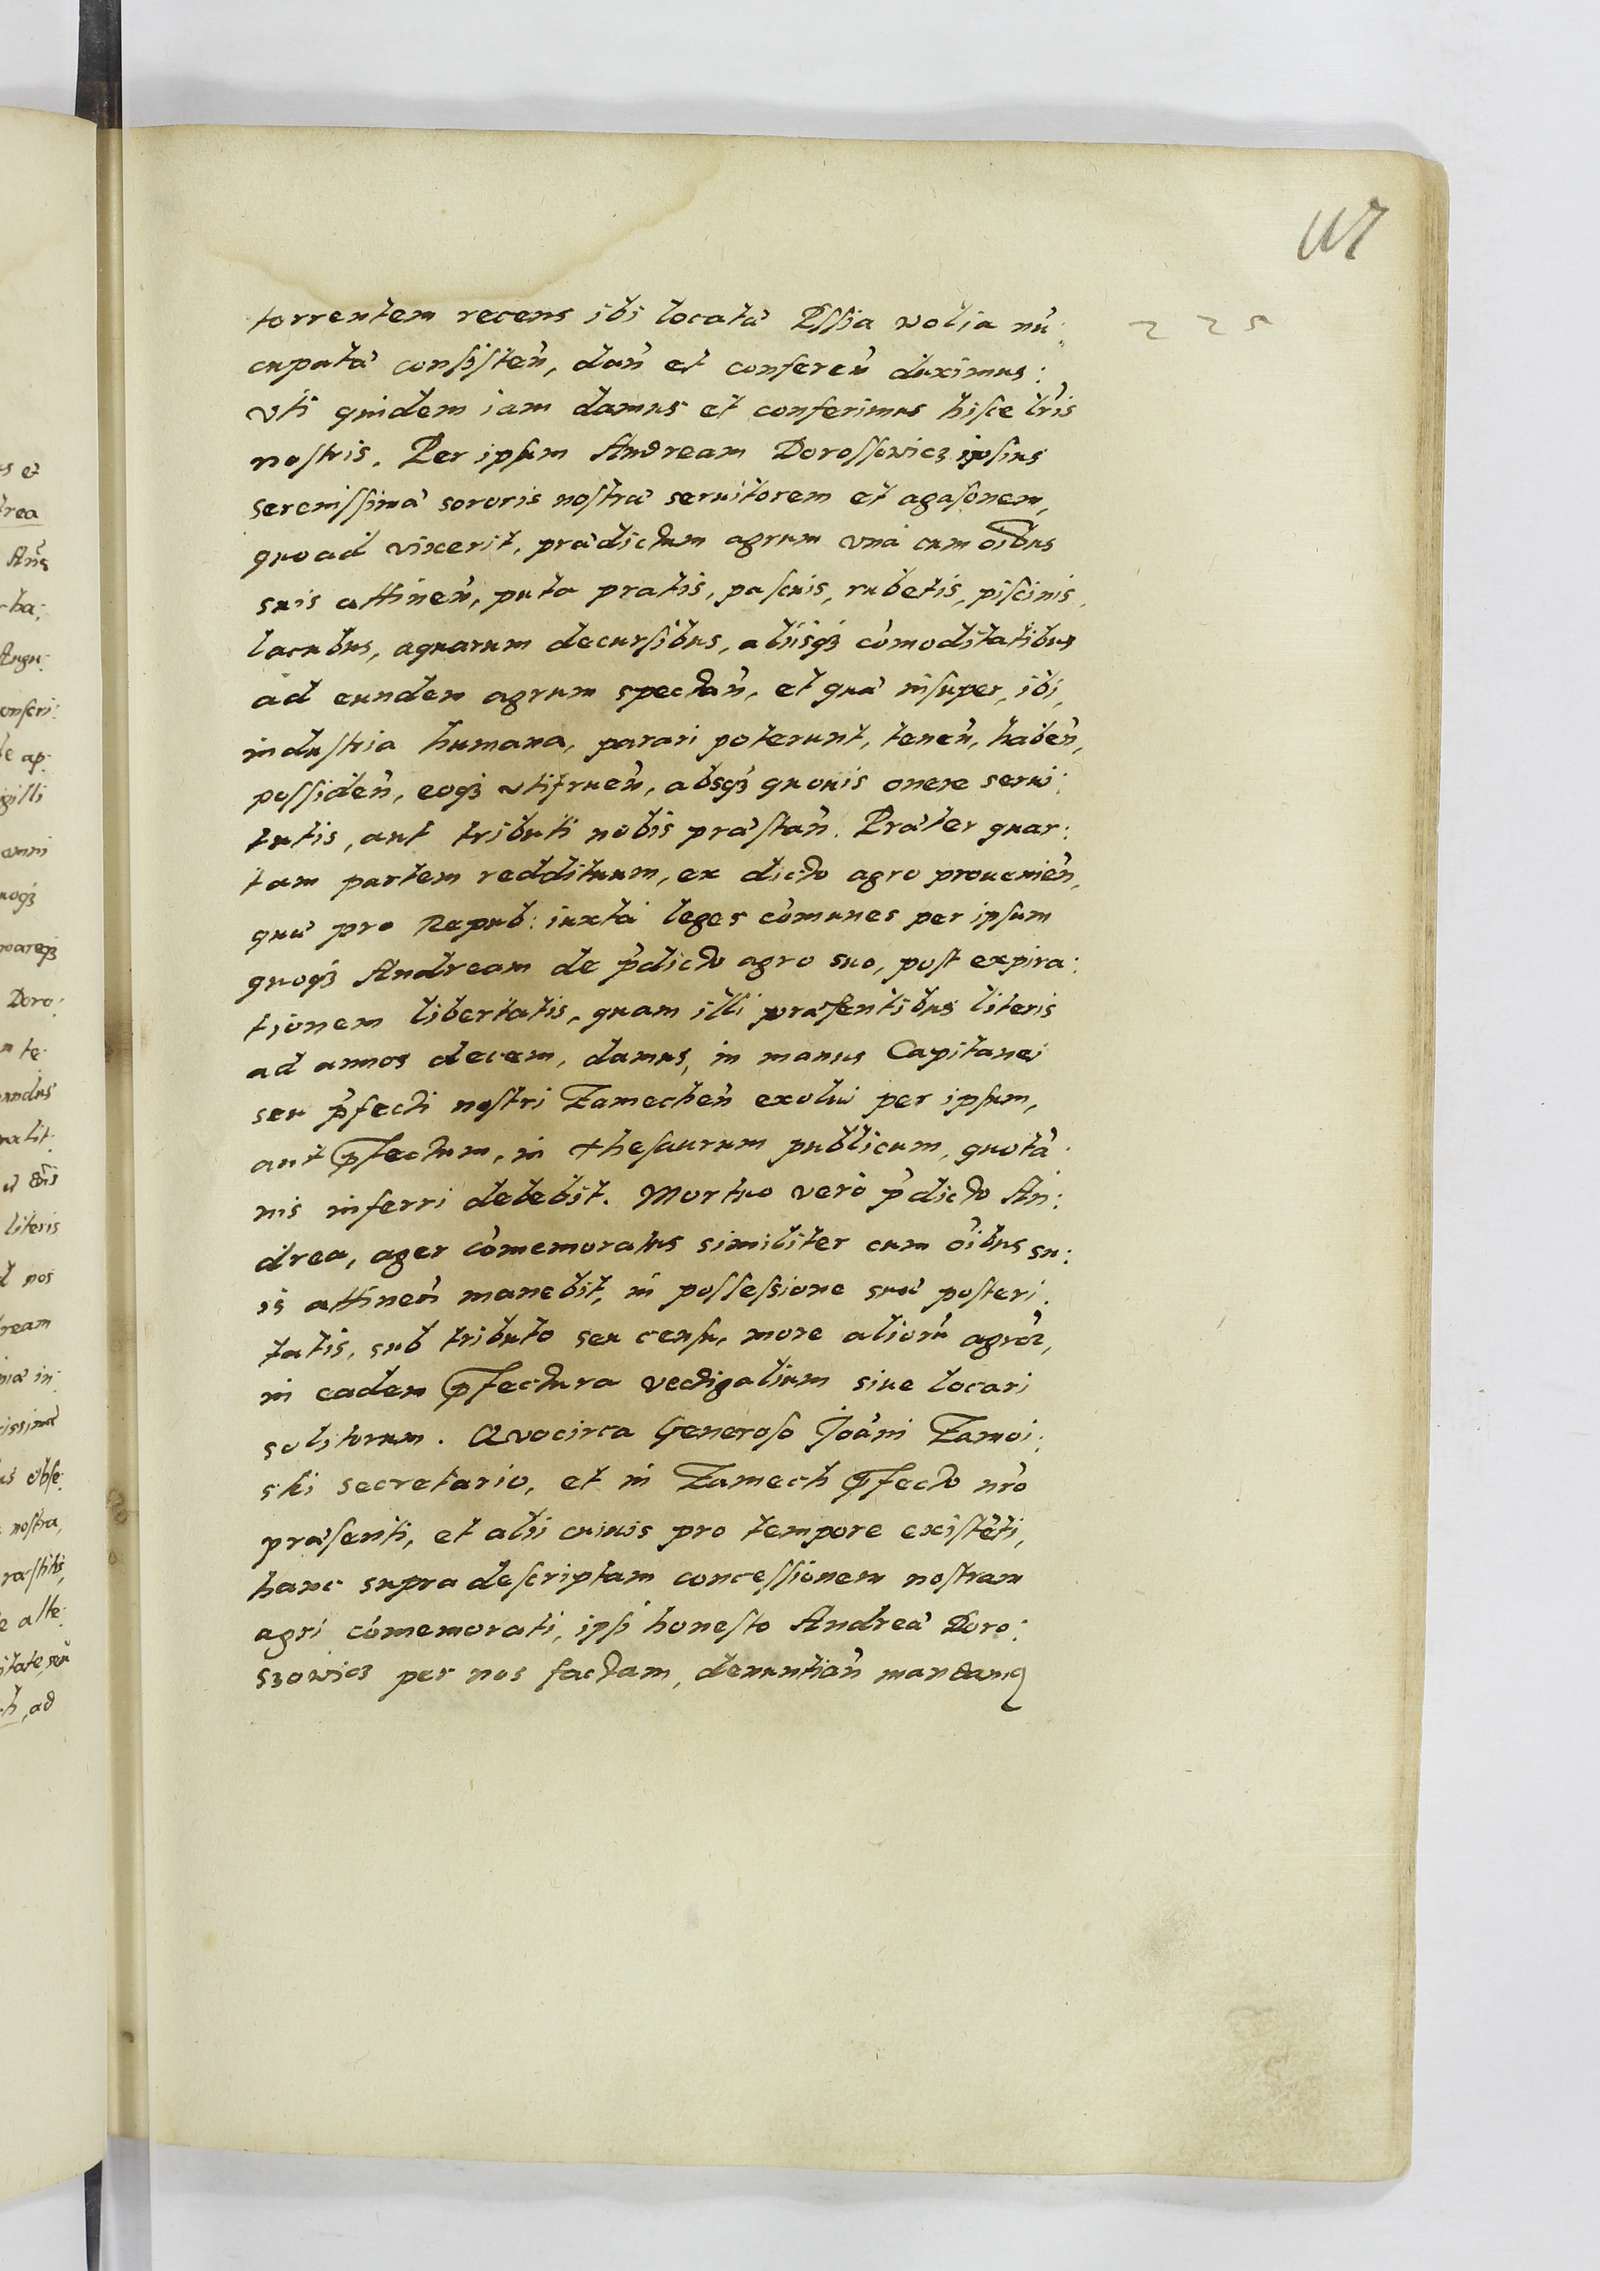 117
225
torrentem recens ibi locatã Pssia wolja nũ:
cupatã consisteñ, dañ et confereñ duximus:
Vti quidem iam damus et conferimus hisce lr̃is
nostris. Per ipsum Andream Dorossowicz ipsius
serenissimæ sororis nostræ seruitorem et agasonem,
quoad vixerit, prædictum agrum vnà cum oĩbus
suis attineñ, puta pratis, pascuis, rubetis, piscinis,
lacubus, aquarum decursibus, alijsqȝ cõmoditatibus
ad eundem agrum spectañ, et quæ insuper, ibi,
industria humana, parari poterunt, teneñ, habeñ,
possideñ, eoqȝ vtifrueñ, absqȝ quouis onere serui:
tutis, aut tributi nobis præstañ. Præter quar:
tam partem reddituum, ex dicto agro prouenieñ,
quæ pro Repub: iuxtà leges cõmunes per ipsum
quoqȝ Andream de p̃dicto agro suo, post expira:
tionem libertatis, quam illi præsentibus literis
ad annos decem, damus, in manus Capitanei
seu p̃fecti nostri Zamecheñ exolui per ipsum,
aut p̃fectum, in thesaurum publicum, quotã:
nis inferri debebit. Mortuo verò p̃dicto An:
drea, ager cõmemoratus similiter cum oĩbus su:
is attineñ manebit, in possessione suæ posteri:
tatis, sub tributo seu censu, more aliorũ agroꝝ,
in eadem p̃fectura vectigalium siue locari
solitorum. Quocirca Generoso Joãni Zamoi:
ski secretario, et in Zamech p̃fecto nr̃o
præsenti, et alij cuiuis pro tempore existẽti,
hanc supra descriptam concessionem nostram
agri cõmemorati, ipsi honesto Andreæ Doro:
szowicz per nos factam, denuntiañ mandamꝯ